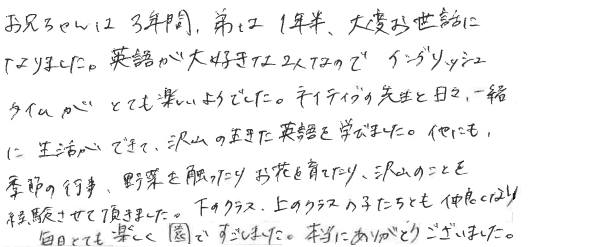 お兄ちゃんは3年間、弟は1年半、大変お世話に
なりました。英語が大好きな2人なので イングリッシュ
タイムが とても楽しいようでした。ネイティブの先生と日々、一緒
に 生活ができて、沢山の生きた英語を学びました。他にも、
季節の行事、野菜を触ったり お花を育てたり、沢山のことを
経験させて頂きました。下のクラス、上のクラスの子たちとも 仲良くなり
毎日とても楽しく園ですごしました。本当にありがとうございました。